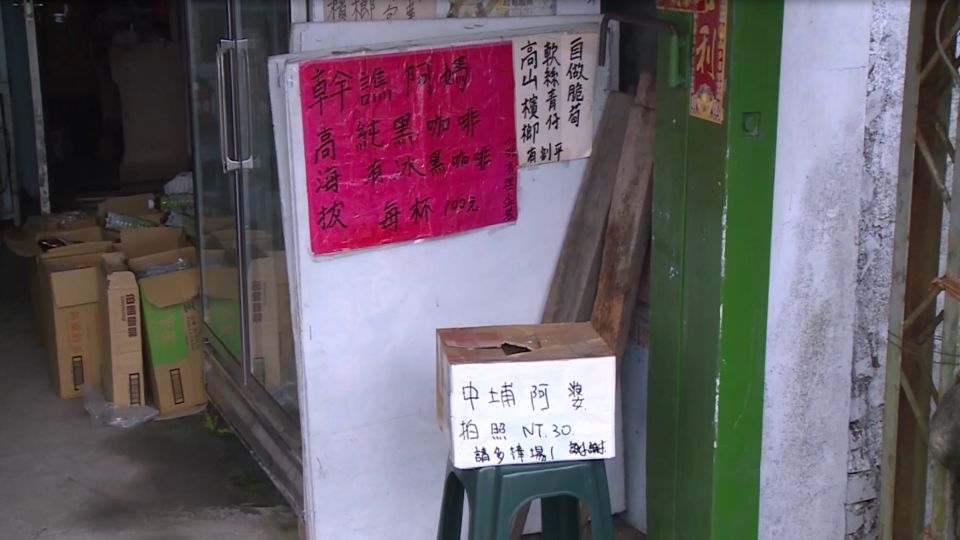 檳榔
幹譙阿嬤
高 純黑咖啡
海 有冰黑咖啡
拔 每杯100元
自做脆筍
軟絲青仔
高山檳榔
有割平
利
中埔阿婆
拍照 NT.30.
請多捧場! 謝謝.